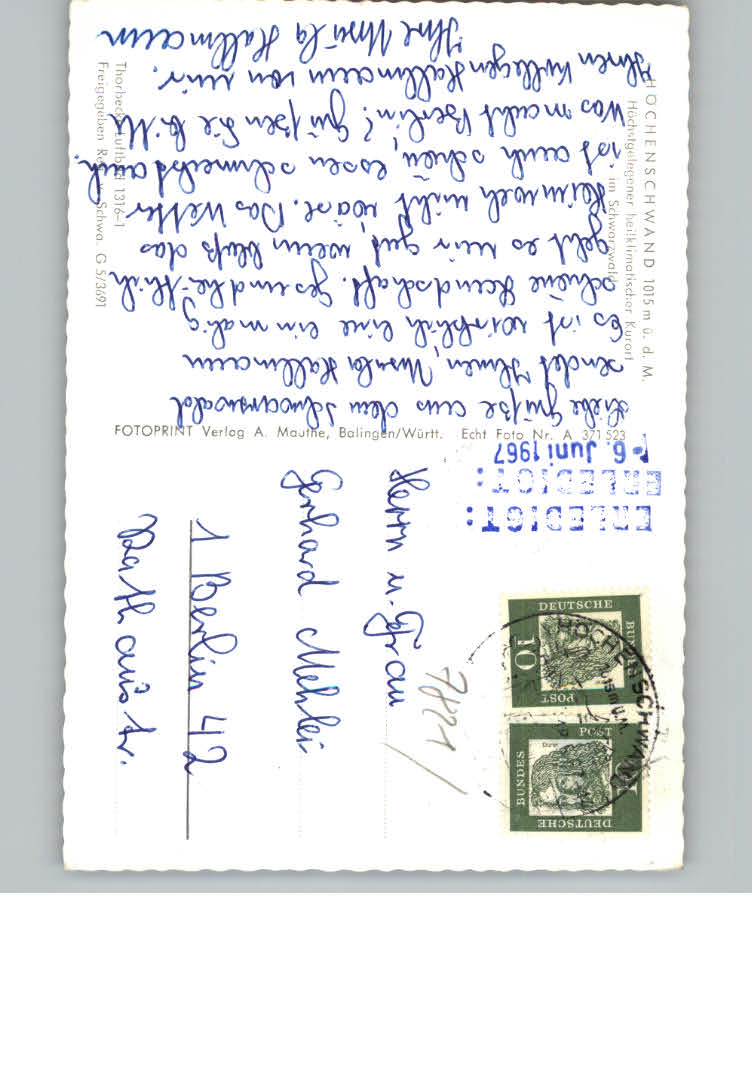 HÖCHENSCHWAND 1015 m ü. d. M.
Höchstgelegener heilklimatischer Kurort
im Schwarzwald
Liebe Grüße aus dem Schwarzwald
sendet Ihnen, Ursula Hallmann
Es ist wirklich eine einmalig
schöne Landschaft. Gesundheitlich
geht es mir gut wenn bloß das
Heimweh nicht wäre. Das Wetter
ist auch schön, essen schmeckt auch.
Was macht Berlin? Grüßen Sie bitte
Ihren Kollegen Hallmann von mir.
Ihre Ursula Hallmann
Thorbecke-Luftbild 1316-1
Freigegeben Reg. Schwa. G 5/3691
FOTOPRINT Verlag A. Mauthe, Balingen/Württ. Echt Foto Nr. A 371 523
ERLEDIGT:
ERLEDIGT:
-6. Juni 1967
DEUTSCHE
BUNDES
POST
10
DEUTSCHE
BUNDES
POST
HÖCHENSCHWAND
Herrn u. Frau
Gerhard
1 Berlin 42
Rathausstr.